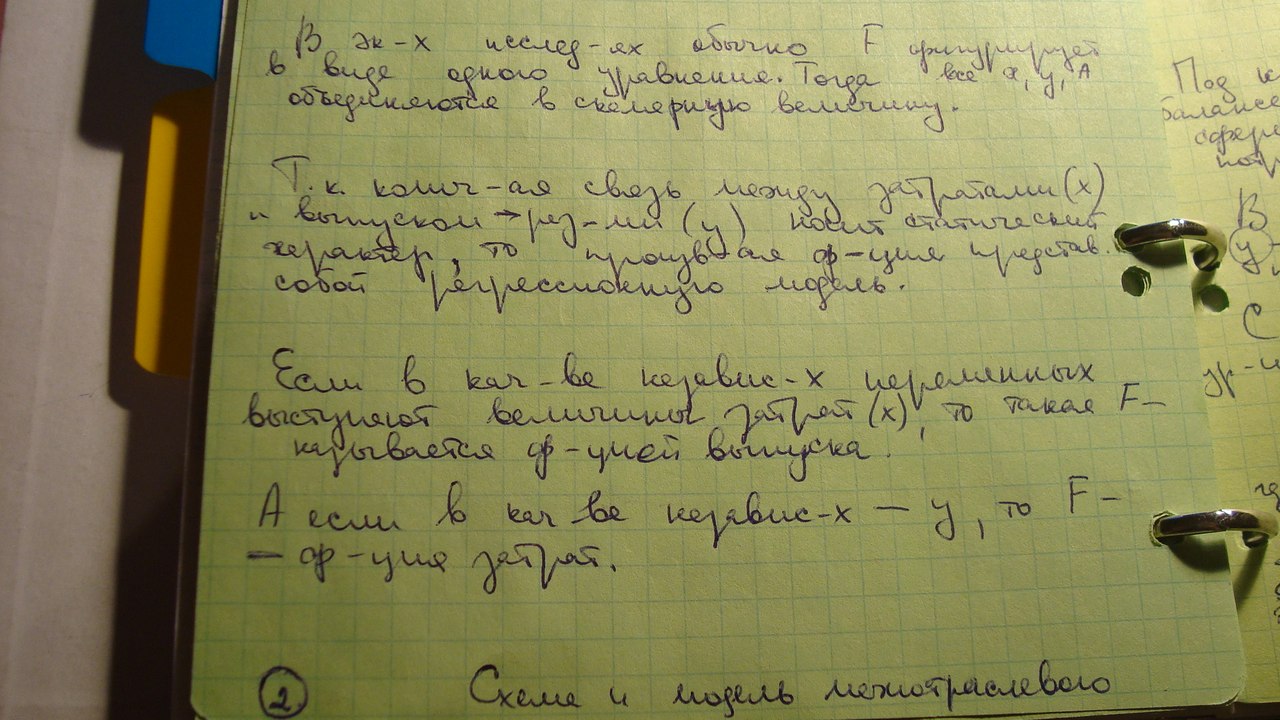 В эк-х исслед-ях обычно F фигурирует
в виде одного уравнения. Тогда все x, y, A
объединяются в скалярную величину.
Т.к. колич-ая связь между затратами (x)
и выпуском → рез-ми (y) носит статический
характер, то произв-ая ф-ция представ.
собой регрессионную модель.
Если в кач-ве независ-х переменных
выступают величины затрат (x), то такая F –
называется ф-цией выпуска.
А если в кач-ве независ-х – y, то F –
– ф-ция затрат.
2. Схема и модель межотраслевого
Под
баланс
сфера
потр
В
y
С
ур-и